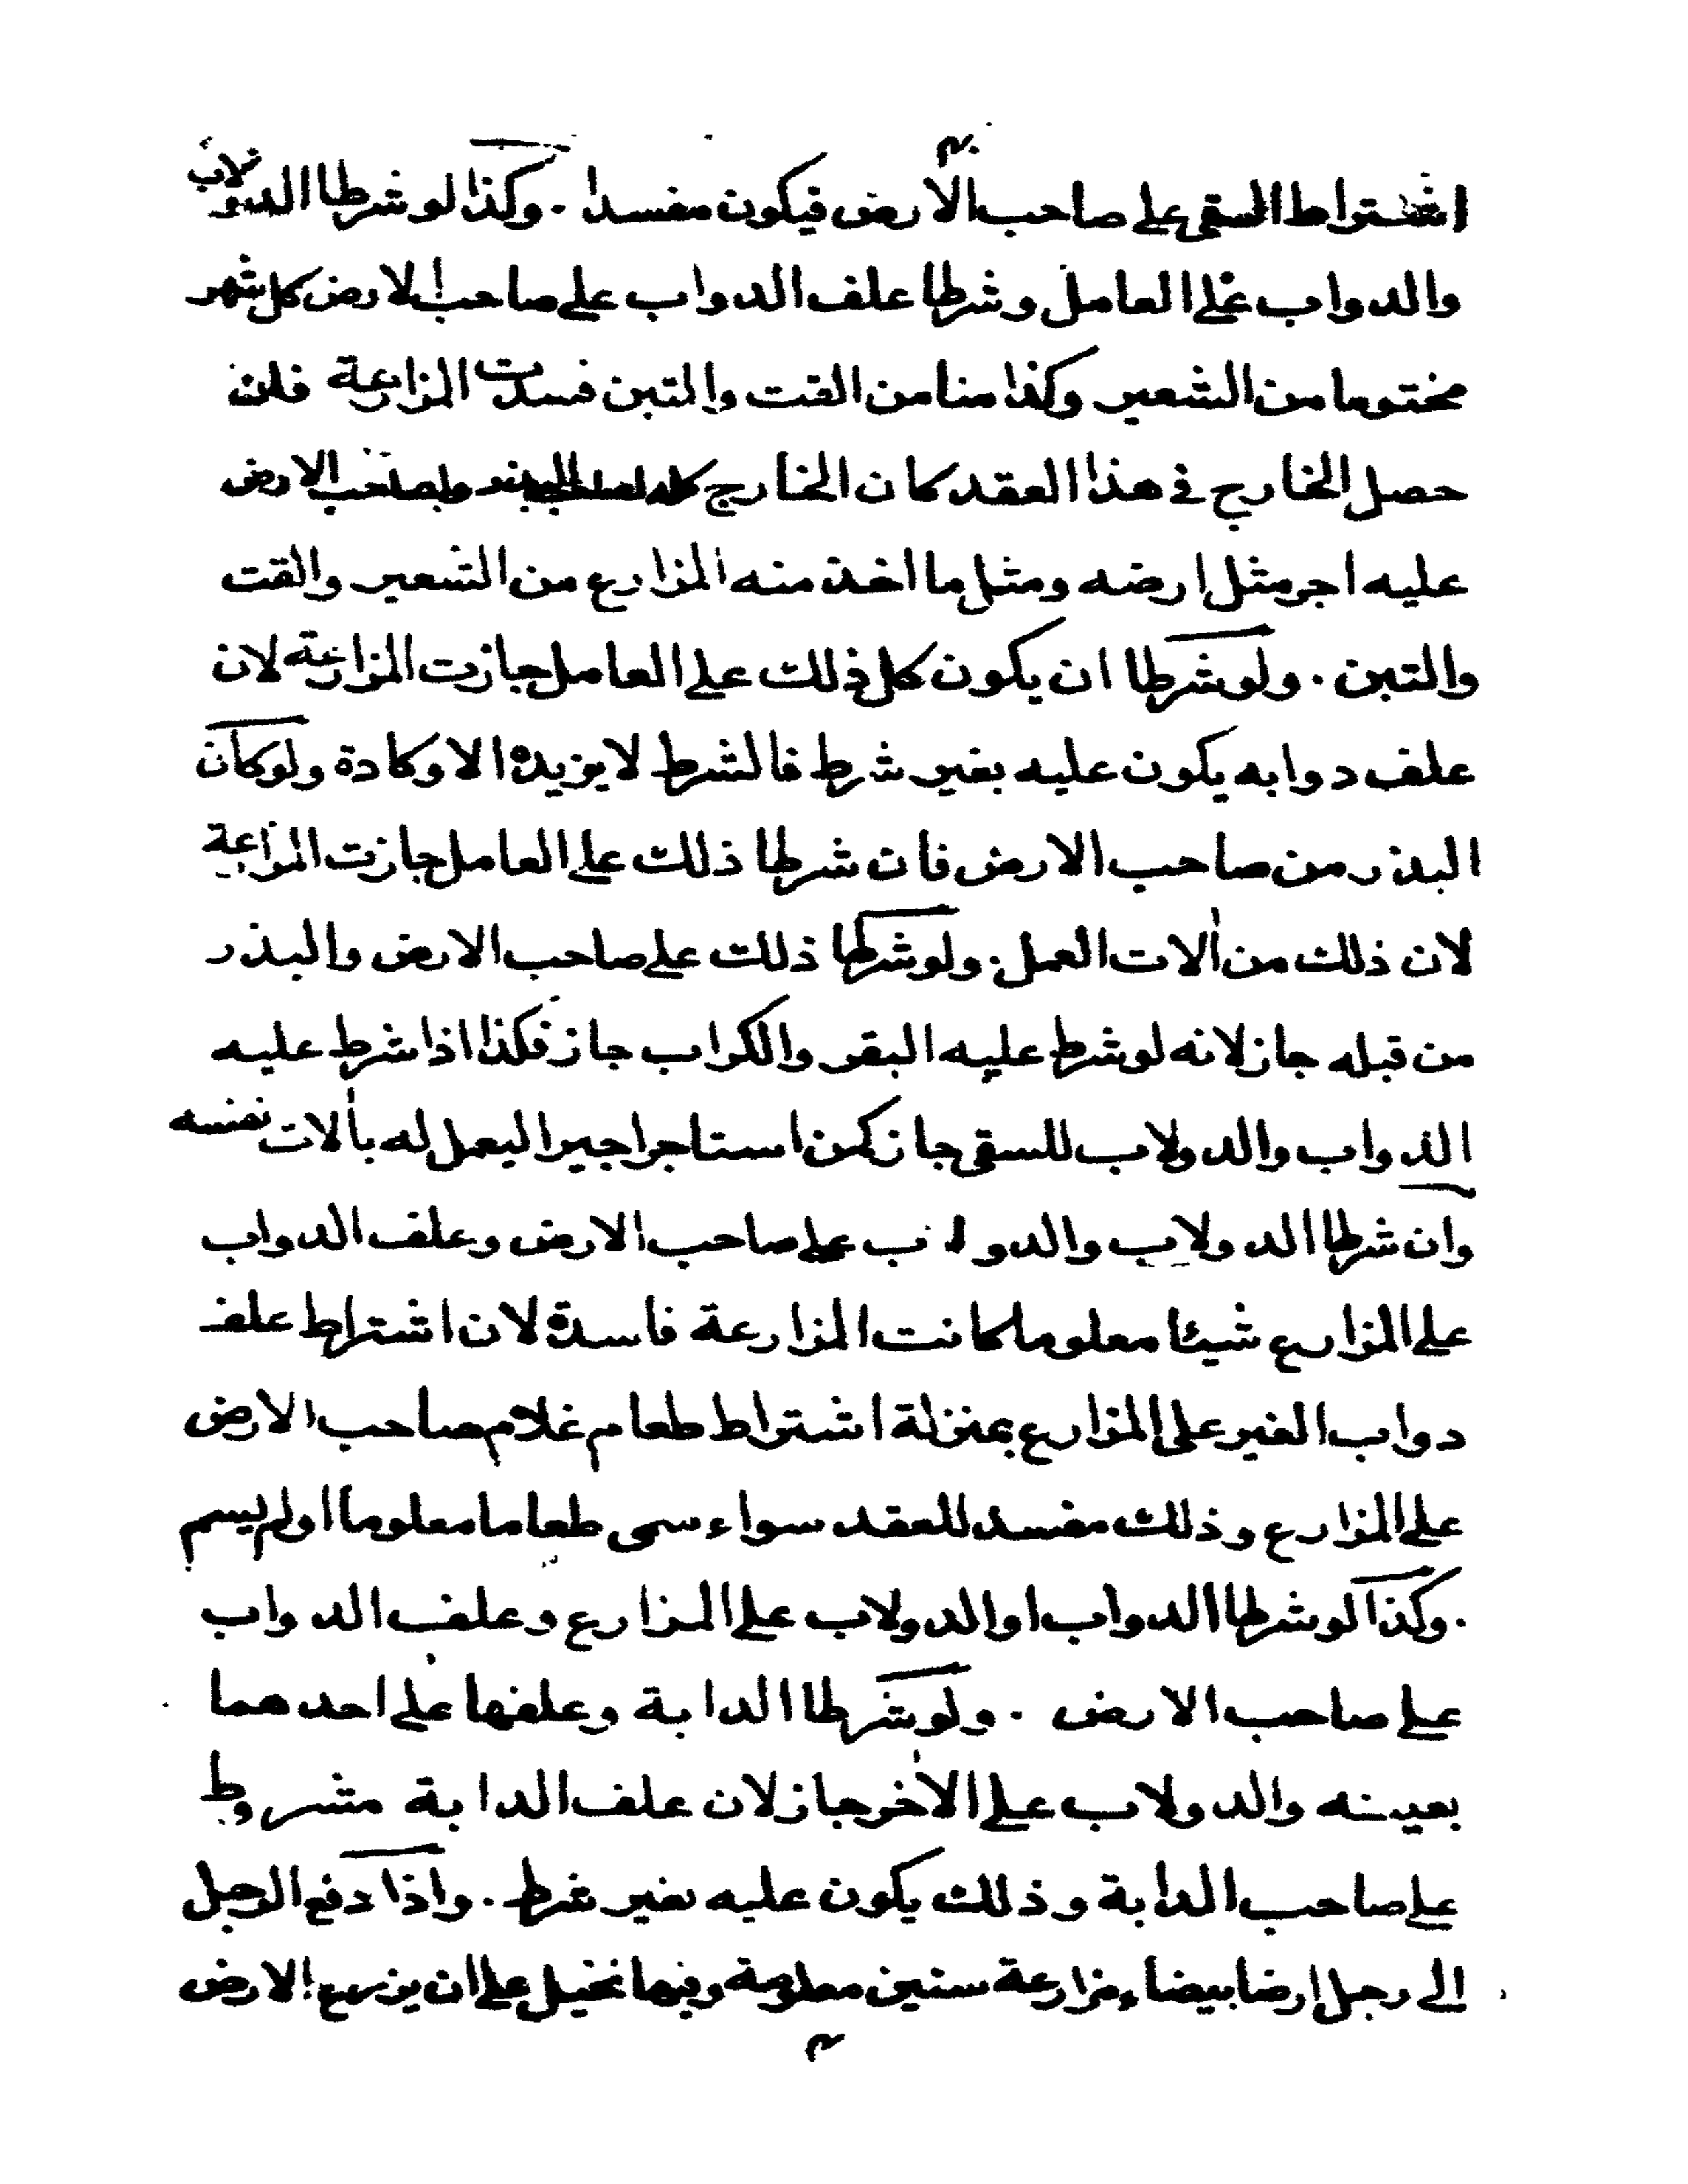 اشتراط السقى على صاحب الارض فيكون مفسدا . وكذا لو شرطا الدولاب
والدواب على العامل وشرطا علف الدواب على صاحب الارض كل شهر
مختوما من الشعير وكذا منا من القت والتبن فسدت المزارعة فان
حصل الخارج فى هذا العقد كان الخارج كله لصاحب البذر ولصاحب الارض
عليه اجر مثل ارضه ومثل ما اخذ منه المزارع من الشعير والقت
والتبن . ولو شرطا ان يكون كل ذلك على العامل جازت المزارعة لان
علف دوابه يكون عليه بغير شرط فالشرط لا يزيده الا وكادة ولو كان
البذر من صاحب الارض فان شرطا ذلك على العامل جازت المزارعة
لان ذلك من آلات العمل . ولو شرطا ذلك على صاحب الارض والبذر
من قبله جاز لانه لو شرط عليه البقر والكراب جاز فكذا اذا شرط عليه
الدواب والدولاب للسقى جاز كمن استاجر اجيرا ليعمل له بآلات نفسه
وان شرطا الدولاب والدواب على صاحب الارض وعلف الدواب
على المزارع شيئا معلوما كانت المزارعة فاسدة لان اشتراط علف
دواب الغير على المزارع بمنزلة اشتراط طعام غلام صاحب الارض
على المزارع وذلك مفسد للعقد سواء سمى طعاما معلوما او لم يسم
. وكذا لو شرطا الدواب او الدولاب على المزارع وعلف الدواب
على صاحب الارض . ولو شرطا الدابة وعلفها على احدهما
بعينه والدولاب على الآخر جاز لان علف الدابة مشروط
على صاحب الدابة وذلك يكون عليه بغير شرط . واذا دفع الرجل
الى رجل ارضا بيضاء مزارعة سنين معلومة وفيها نخيل على ان يزرع الارض